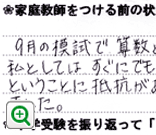 ❀家庭教師をつける前の状
9月の模試で算数と
私としては すぐにでも
ということに抵抗がよ
た。
受験を振り返って「